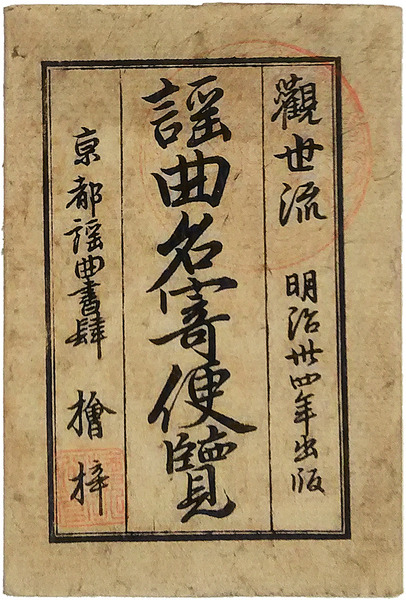 觀世流 明治卅四年出版
謡曲名寄便覽
京都謡曲書肆 檜梓